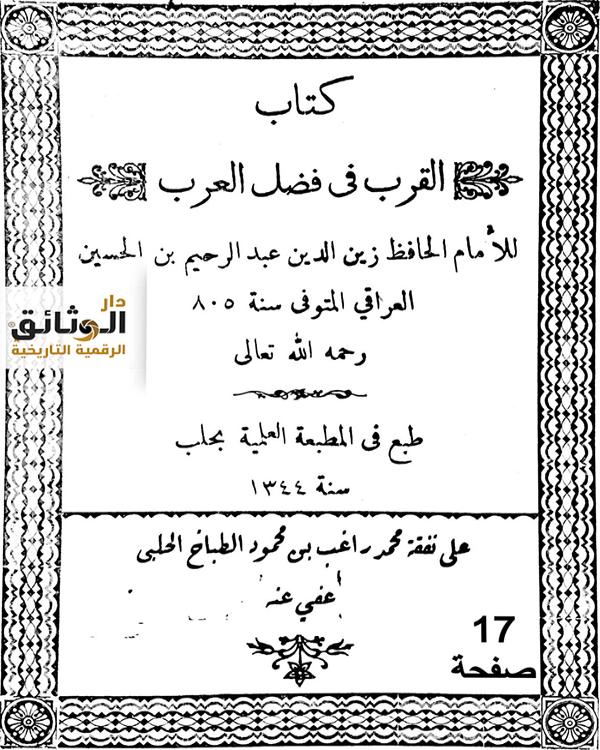 كتاب
القرب فى فضل العرب
للأمام الحافظ زين الدين عبد الرحيم بن الحسين
العراقي المتوفى سنة ٨٠٥
رحمه الله تعالى
دار
الوثائق
الرقمية التاريخية
طبع فى المطبعة العلمية بحلب
سنة ١٣٤٤
على نفقة محمد راغب بن محمود الطباخ الحلبى
عفي عنه
17
صفحة